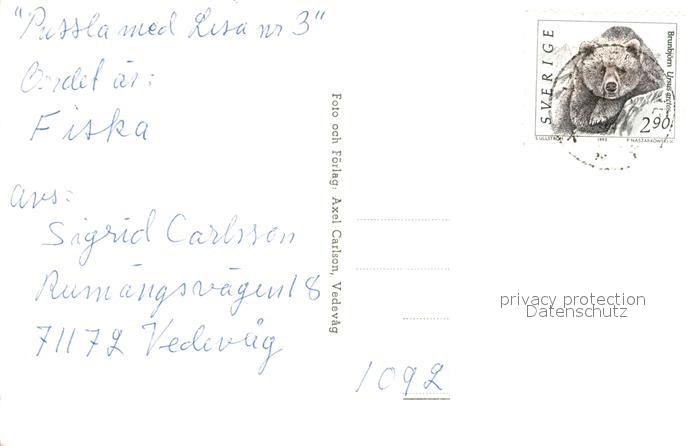 "Pussla med Lisa nr 3"
Ordet är:
Fiska
avs:
Sigrid Carlsson
Rumängsvägen 18
71172 Vedevåg
Foto och Förlag: Axel Carlson, Vedevåg
SVERIGE
Brunbjörn Ursus arctos
2.90
1992
privacy protection
Datenschutz
1092